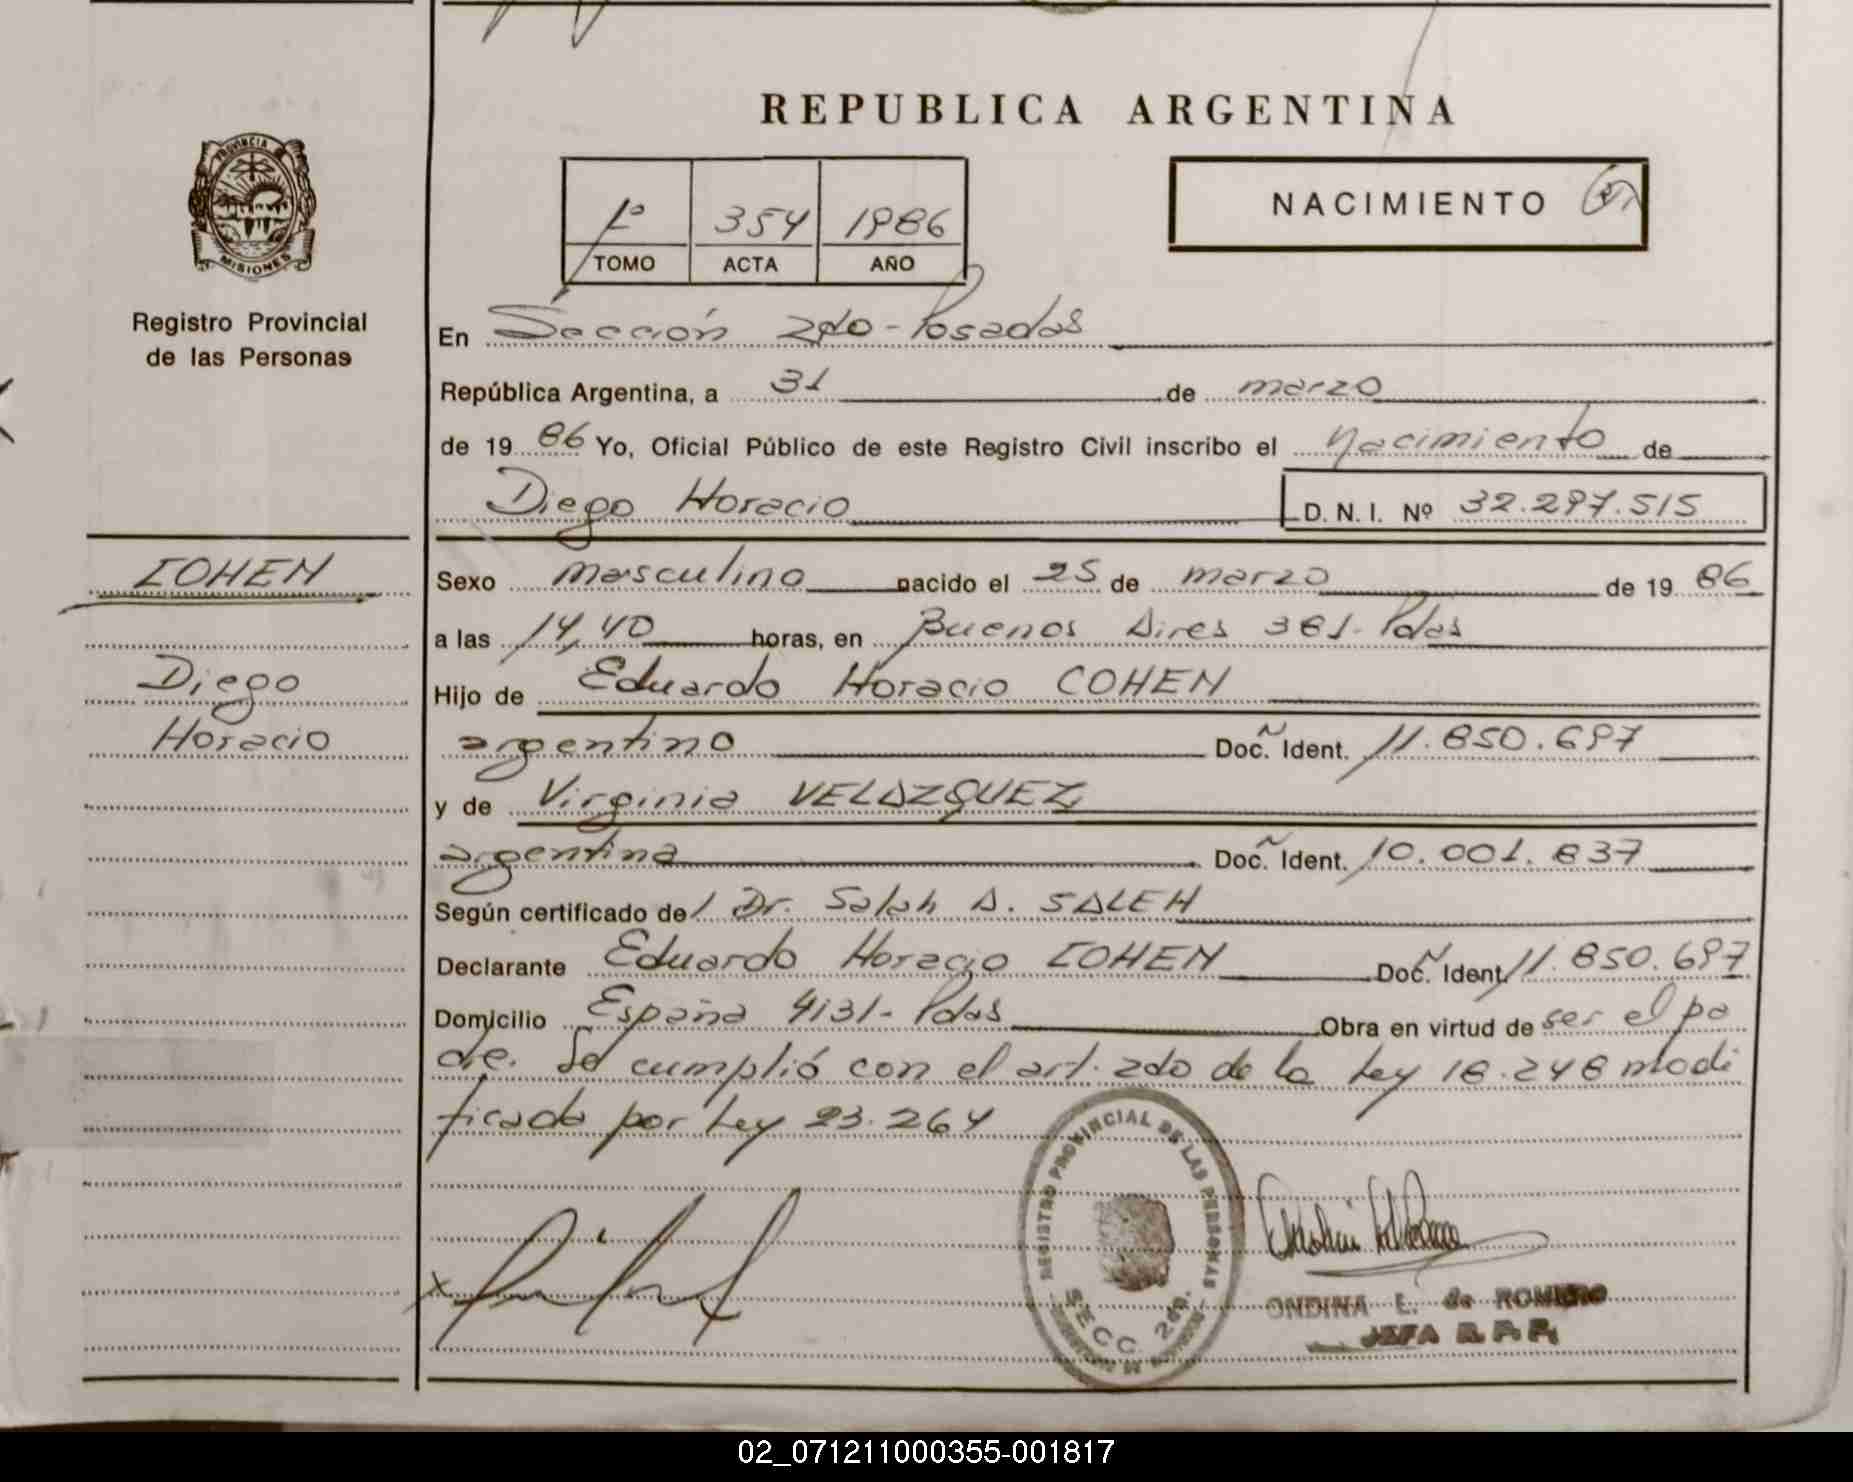 REPUBLICA ARGENTINA
PROVINCIA
MISIONES
Registro Provincial
de las Personas
1º 354 1986
TOMO ACTA AÑO
NACIMIENTO
En Sección 2do - Posadas
República Argentina, a 31 de marzo
de 1986 Yo, Oficial Público de este Registro Civil inscribo el Nacimiento de
Diego Horacio D. N. I. Nº 32.297.515
COHEN
Diego
Horacio
Sexo masculino nacido el 25 de marzo de 1986
a las 14,40 horas, en Buenos Aires 381 - Pdas
Hijo de Eduardo Horacio COHEN
argentino Doc. Ident. 11.850.697
y de Virginia VELAZQUEZ
argentina Doc. Ident. 10.001.837
Según certificado del Dr. Salah A. SALEH
Declarante Eduardo Horacio COHEN Doc. Ident. 11.850.697
Domicilio España 4131 - Pdas Obra en virtud de ser el pa
dre. Se cumplió con el art. 2do de la Ley 18.248 modi
ficada por Ley 23.264
REGISTRO PROVINCIAL DE LAS PERSONAS
SECC. 2da.
ONDINA E. de ROMERO
JEFA R. P. P.
02_071211000355-001817